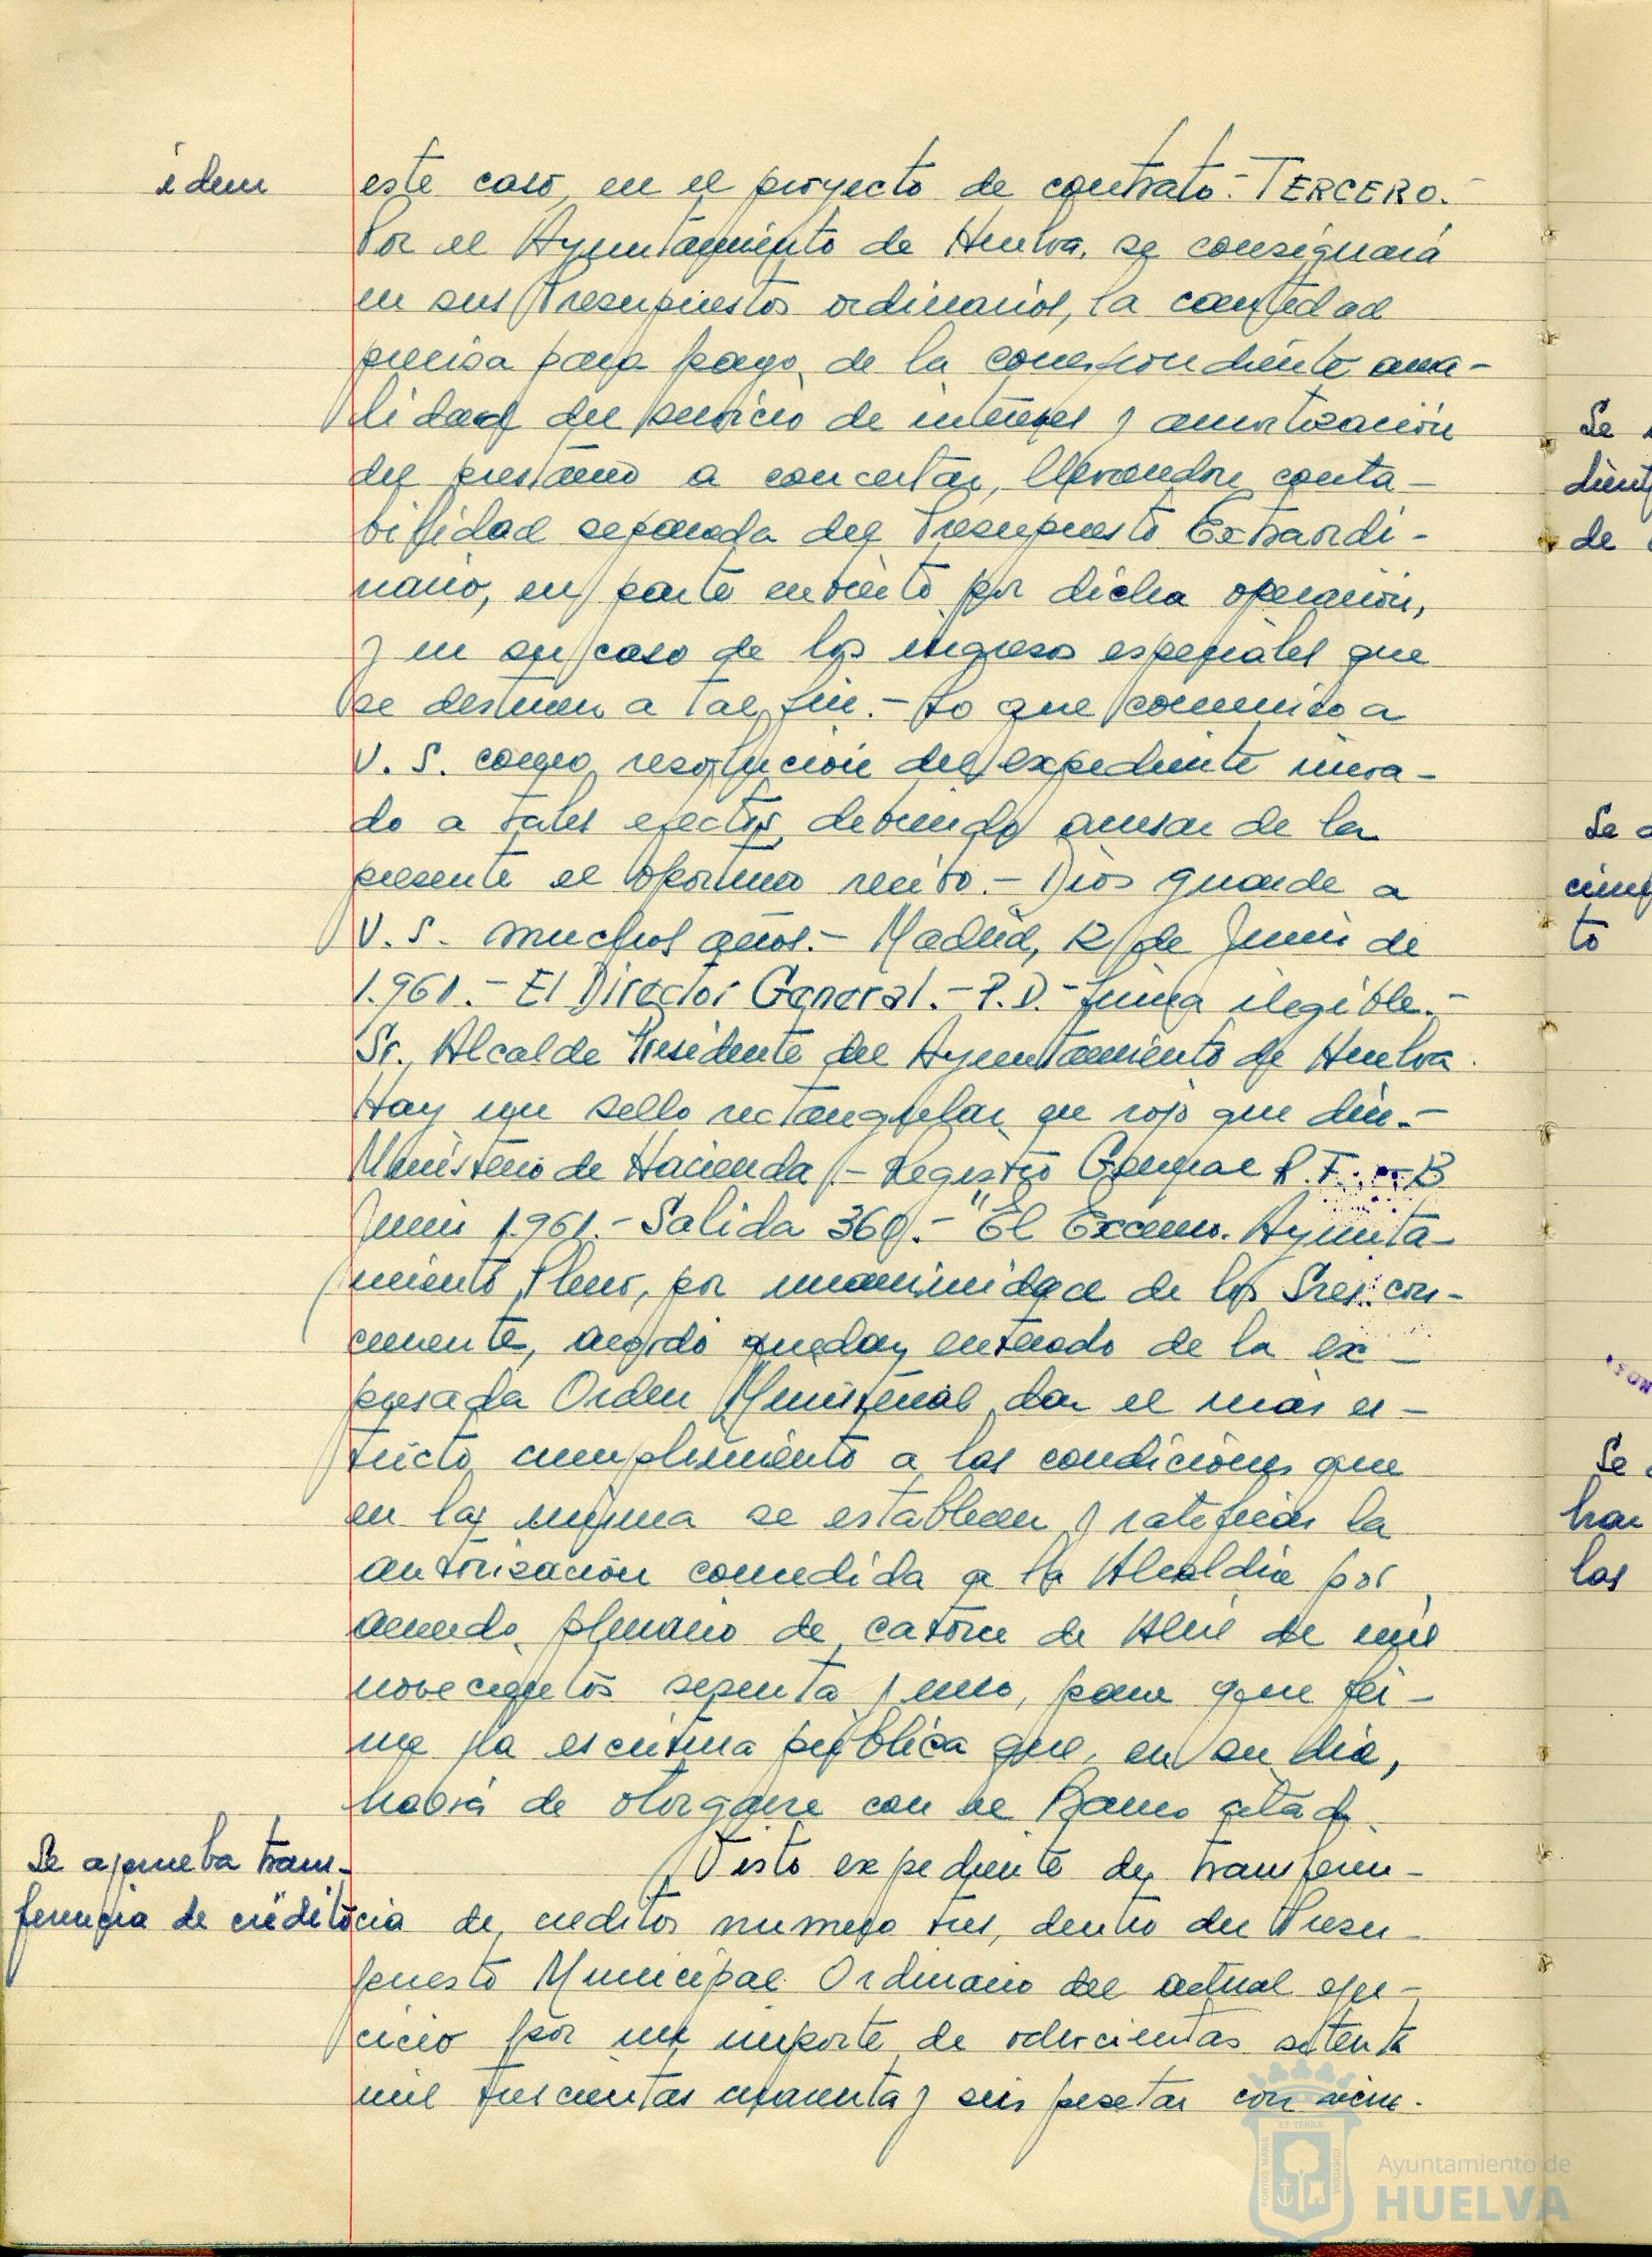 idem
este caso, en el proyecto de contrato.- TERCERO.-
Por el Ayuntamiento de Huelva, se consignará
en sus Presupuestos ordinarios, la cantidad
precisa para pago de la correspondiente anua-
lidad del servicio de intereses y amortización
del prestamo a concertar, llevandose conta-
bilidad separada del Presupuesto Extraordi-
nario, en parte cubierto por dicha operación,
y en su caso de los ingresos especiales que
se destinen a tal fin.- Lo que comunico a
V. S. como resolución del expediente incoa-
do a tales efectos, debiendo acusar de la
presente el oportuno recibo.- Dios guarde a
V. S. muchos años.- Madrid, 12 de Junio de
1.961.- El Director General.- P.D.- firma ilegible.-
Sr. Alcalde Presidente del Ayuntamiento de Huelva.
Hay un sello rectangular en rojo que dice.-
Ministerio de Hacienda.- Registro General
Junio 1.961.- Salida 360.- "El Excmo. Ayunta-
miento Pleno, por unanimidad de los Sres. con-
currente, acordó quedar enterado de la ex-
presada Orden Ministerial, dar el más es-
tricto cumplimiento a las condiciones que
en la misma se establecen y ratificar la
autorización concedida a la Alcaldía por
acuerdo plenario de catorce de Abril de mil
novecientos sesenta y uno, para que fir-
me la escritura pública que, en su día,
habrá de otorgarse con el Banco citado.
Se aprueba trans-
ferencia de créditos
Visto expediente de transferen-
cia de creditos numero tres, dentro del Presu-
puesto Municipal Ordinario del actual ejer-
cicio por un importe de ochocientas setenta
mil trescientas cuarenta y seis pesetas con
Se
de
Se
to
Se
las
Ayuntamiento de
HUELVA